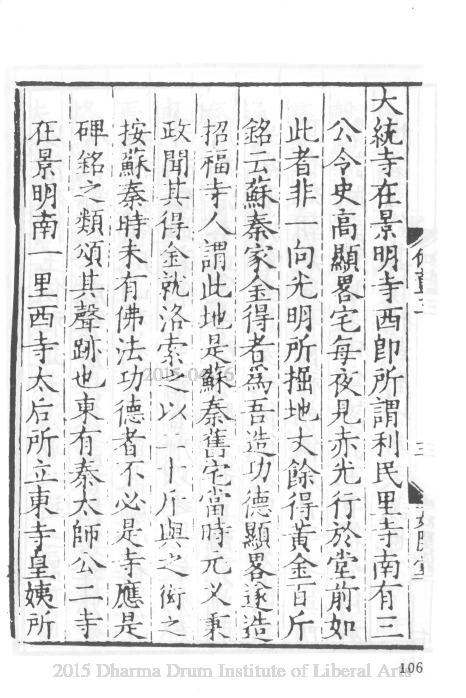 大統寺在景明寺西即所謂利民里寺南有三
公令史高顯畧宅每夜見赤光行於堂前如
此者非一向光明所掘地丈餘得黃金百斤
銘云蘇秦家金得者爲吾造功德顯畧遂造
招福寺人謂此地是蘇秦舊宅當時元乂秉
政聞其得金就洛索之以二十斤與之衒之
按蘇秦時未有佛法功德者不必是寺應是
碑銘之類頌其聲跡也東有秦太師公二寺
在景明南一里西寺太后所立東寺皇姨所
2015 Dharma Drum Institute of Liberal Arts
106